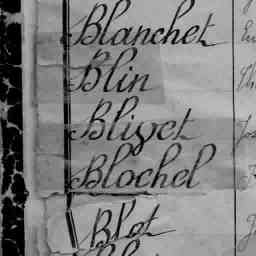 Blanchet
Blin
Blivet
Blochel
Blot